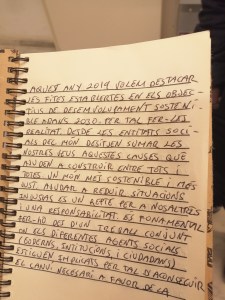 AQUEST ANY 2019 VOLEM DESTACAR
LES FITES ESTABLERTES EN ELS OBJEC-
TIUS DE DESENVOLUPAMENT SOSTENI-
QUE ABANS 2030. PER TAL FER-LES
REALITAT. DESDE LES ENTITATS SOCI-
ALS DEL MON DESITJEM SUMAR LES
NOSTRES VEUS AQUESTES CAUSES QUE
AJUDEN A CONSTRUIR ENTRE TOTS I
TOTES UN MON MÉS SOSTENIBLE I MES
JUST. AJUDAR A REDUIR SITUACIONS
INJUSTAS ES UN REPTE PER A NOSALTRES
I UNA RESPONSABILITAT. ES FONAMENTAL
FER-HO DES D'UN TREBALL CONJUNT
ON ELS DIFERENTES AGENTS SOCIALS
(GOBERNS, INSTITUCIONS, I CIUDADANS)
ESTIGUEN IMPLICATS PER TAL D'ACONSEGUIR
EL CANVI NECESARI A FAVOR DE LA